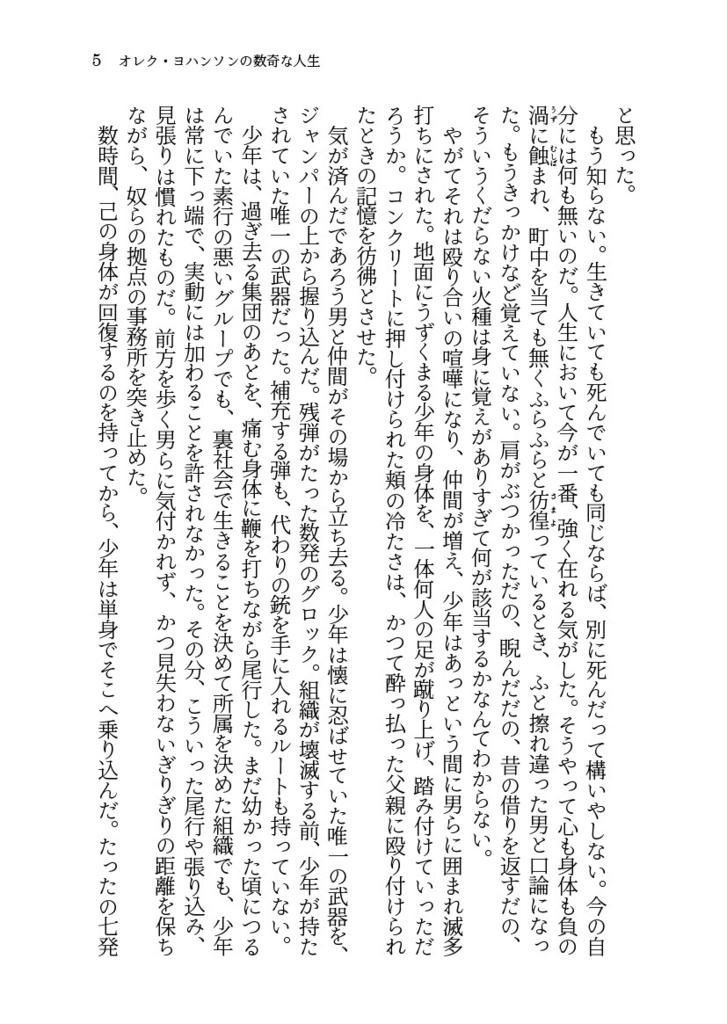 5 オレク・ヨハンソンの数奇な人生
と思った。
もう知らない。生きていても死んでいても同じならば、別に死んだって構いやしない。今の自
分には何も無いのだ。人生において今が一番、強く在れる気がした。そうやって心も身体も負の
渦に蝕まれ、町中を当ても無くふらふらと彷徨っているとき、ふと擦れ違った男と口論になっ
た。もうきっかけなど覚えていない。肩がぶつかっただの、睨んだだの、昔の借りを返すだの、
そういうくだらない火種は身に覚えがありすぎて何が該当するかなんてわからない。
やがてそれは殴り合いの喧嘩になり、仲間が増え、少年はあっという間に男らに囲まれ滅多
打ちにされた。地面にうずくまる少年の身体を、一体何人の足が蹴り上げ、踏み付けていっただ
ろうか。コンクリートに押し付けられた頬の冷たさは、かつて酔っ払った父親に殴り付けられ
たときの記憶を彷彿とさせた。
気が済んだであろう男と仲間がその場から立ち去る。少年は懐に忍ばせていた唯一の武器を、
ジャンパーの上から握り込んだ。残弾がたった数発のグロック。組織が壊滅する前、少年が持た
されていた唯一の武器だった。補充する弾も、代わりの銃を手に入れるルートも持っていない。
少年は、過ぎ去る集団のあとを、痛む身体に鞭を打ちながら尾行した。まだ幼かった頃につる
んでいた素行の悪いグループでも、裏社会で生きることを決めて所属を決めた組織でも、少年
は常に下っ端で、実動には加わることを許されなかった。その分、こういった尾行や張り込み、
見張りは慣れたものだ。前方を歩く男らに気付かれず、かつ見失わないぎりぎりの距離を保ち
ながら、奴らの拠点の事務所を突き止めた。
数時間、己の身体が回復するのを持ってから、少年は単身でそこへ乗り込んだ。たったの七発